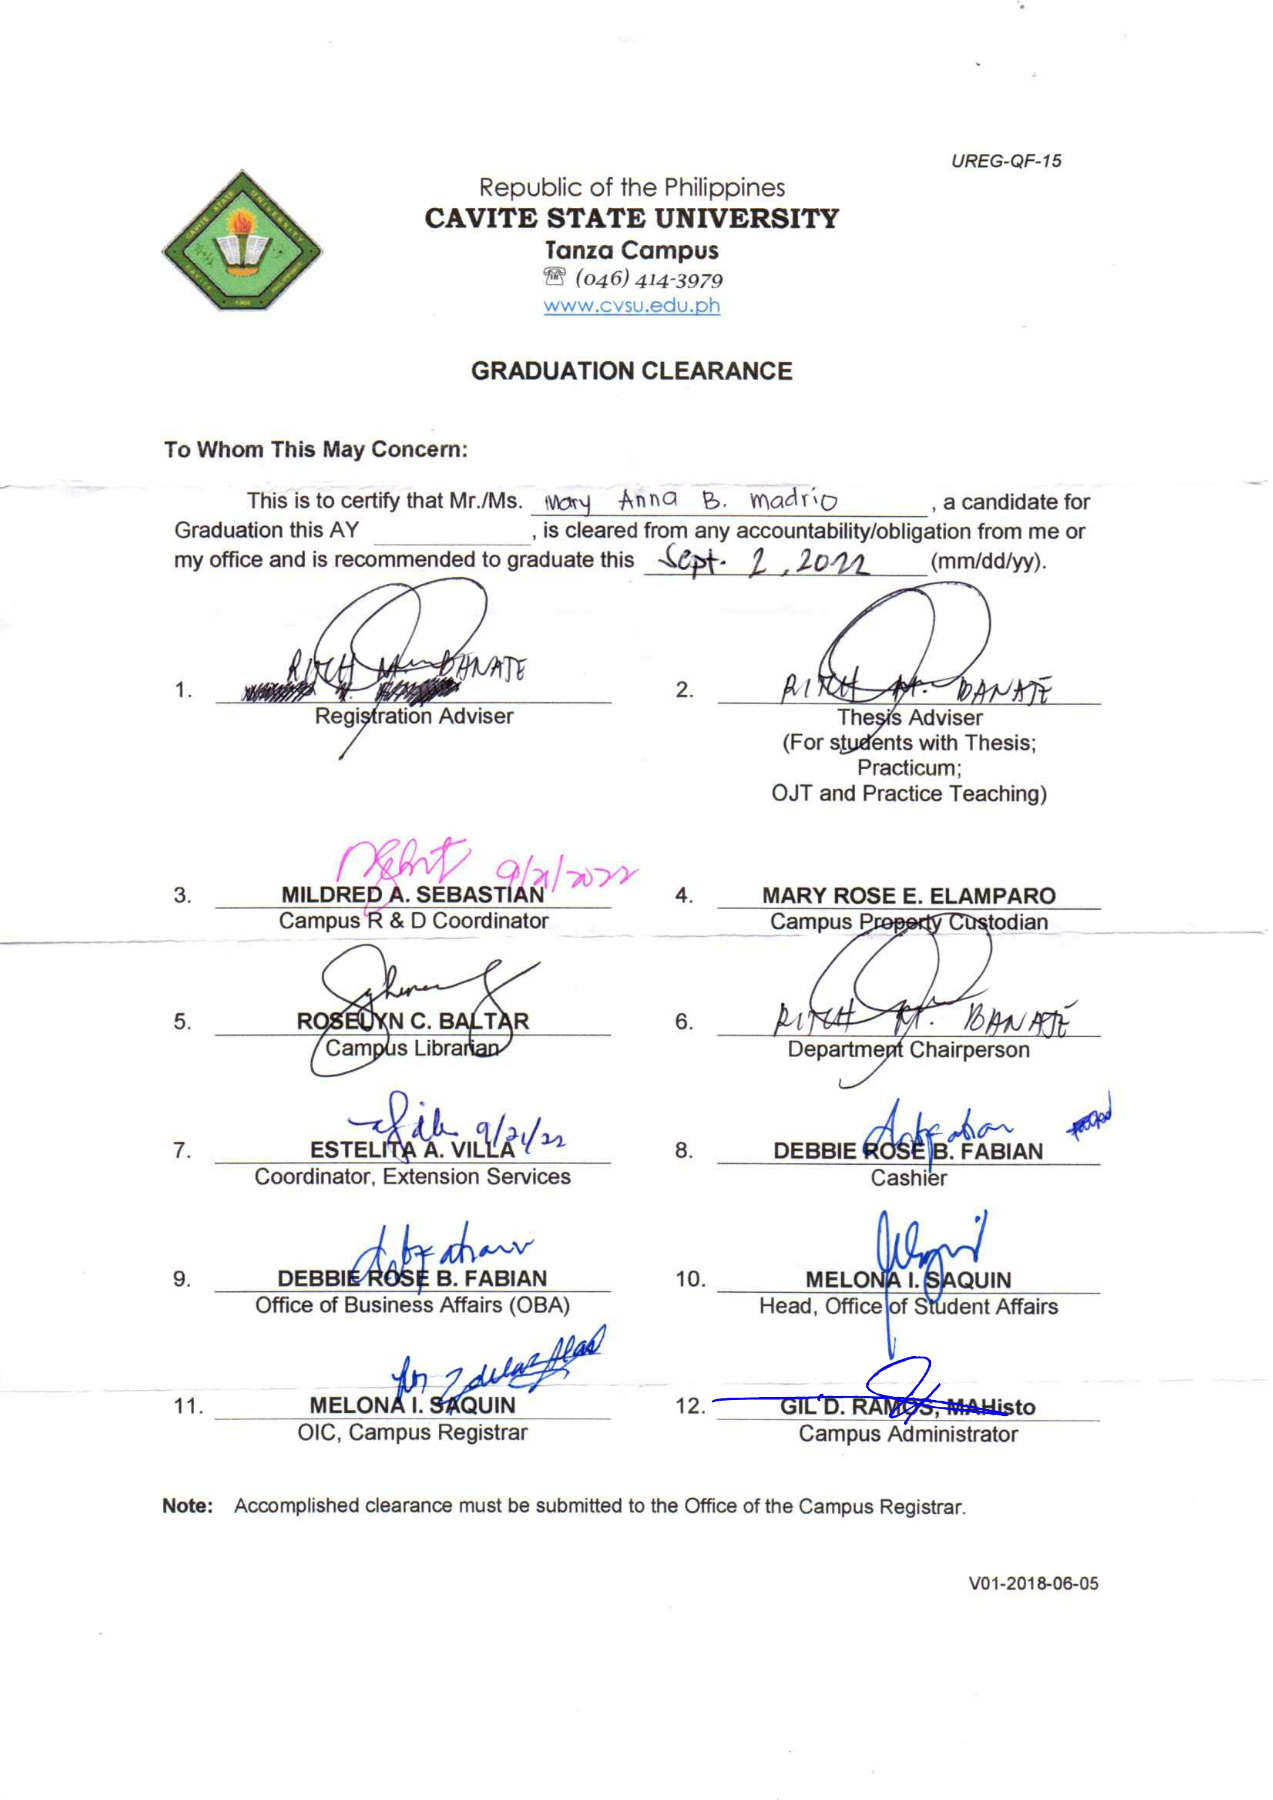 UREG-QF-15
Republic of the Philippines
CAVITE STATE UNIVERSITY
Tanza Campus
☏ (046) 414-3979
www.cvsu.edu.ph
CAVITE STATE UNIVERSITY
CAVITE
GRADUATION CLEARANCE
To Whom This May Concern:
This is to certify that Mr./Ms. Mary Anna B. Madrio, a candidate for
Graduation this AY ____________, is cleared from any accountability/obligation from me or
my office and is recommended to graduate this Sept. 2, 2022 (mm/dd/yy).
1. RITCH M. BANATE
Registration Adviser
2. RITCH M. BANATE
Thesis Adviser
(For students with Thesis;
Practicum;
OJT and Practice Teaching)
9/21/2022
3. MILDRED A. SEBASTIAN
Campus R & D Coordinator
4. MARY ROSE E. ELAMPARO
Campus Property Custodian
5. ROSELYN C. BALTAR
Campus Librarian
6. RITCH M. BANATE
Department Chairperson
9/21/22
7. ESTELITA A. VILLA
Coordinator, Extension Services
8. DEBBIE ROSE B. FABIAN
Cashier
9. DEBBIE ROSE B. FABIAN
Office of Business Affairs (OBA)
10. MELONA I. SAQUIN
Head, Office of Student Affairs
11. MELONA I. SAQUIN
OIC, Campus Registrar
12. GIL D. RAMOS, MAHisto
Campus Administrator
Note: Accomplished clearance must be submitted to the Office of the Campus Registrar.
V01-2018-06-05